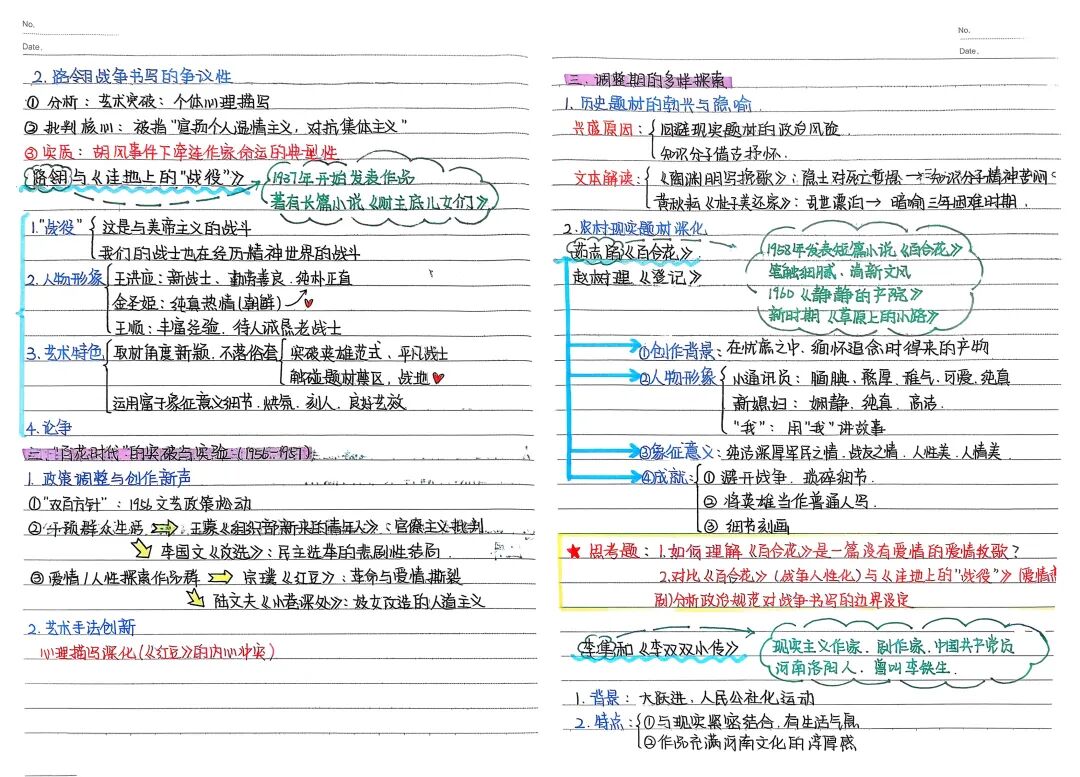 No.
Date.
2. 路翎战争书写的争议性
① 分析：艺术突破：个体心理描写
② 批判核心：被指"宣扬个人温情主义，对抗集体主义"
③ 实质：胡风事件下牵连作家命运的典型性
路翎与《洼地上的"战役"》
1937年开始发表作品
著有长篇小说《财主底儿女们》
1."战役"
这是与美帝主义的战斗
我们的战士也在经历精神世界的战斗
2.人物形象
王洪应：新战士、勤劳善良、纯朴正直
金圣姬：纯真热情(朝鲜)
王顺：丰富经验、待人诚恳老战士
3.艺术特色
取材角度新颖，不落俗套
突破英雄范式、平凡战士
触碰题材禁区，战地
运用富于象征意义细节、烘氛、刻人、良好艺效
4.论争
二、"百花时代"的突破与实验:(1956-1957)
1. 政策调整与创作新声
①"双百方针"：1956文艺政策松动
② 干预群众生活 王蒙《组织部新来的青年人》：官僚主义批判
李国文《改选》：民主选举的悲剧性结局.
③ 爱情/人性探索作品群 宗璞《红豆》：革命与爱情撕裂
陆文夫《小巷深处》：妓女改造的人道主义
2. 艺术手法创新
心理描写深化(《红豆》的内心冲突)
No.
Date.
三.调整期的多样探索
1. 历史题材的勃兴与隐喻.
兴盛原因：
回避现实题材的政治风险.
知识分子借古抒怀.
文本解读：
《陶渊明写挽歌》：隐士对死亡哲思→知识分子精神苦闷
黄秋耘《杜子美还家》：乱世漂泊→暗喻三年困难时期.
2.农村现实题材深化
茹志鹃《百合花》
赵树理《登记》
1958年发表短篇小说《百合花》
笔触细腻、清新文风
1960《静静的产院》
新时期《草原上的小路》
①创作背景：在忧虑之中.缅怀追念时得来的产物
②人物形象
小通讯员：腼腆、憨厚.稚气.可爱.纯真
新媳妇：娴静.纯真.高洁.
"我"：用"我"讲故事
③象征意义：纯洁深厚军民之情、战友之情、人性美.人情美.
④成就：
① 避开战争、琐碎细节.
② 将英雄当作普通人写.
③ 细节刻画
★ 思考题：1.如何理解《百合花》是一篇没有爱情的爱情牧歌？
2.对比《百合花》(战争人性化)与《洼地上的"战役"》(爱情悲
剧)分析政治规范对战争书写的边界设定
李準和《李双双小传》
现实主义作家、剧作家、中国共产党员
河南洛阳人、曾叫李铁生.
1.背景：大跃进，人民公社化运动
2.特点：
①与现实紧密结合，有生活气息
②作品充满河南文化的淳厚感